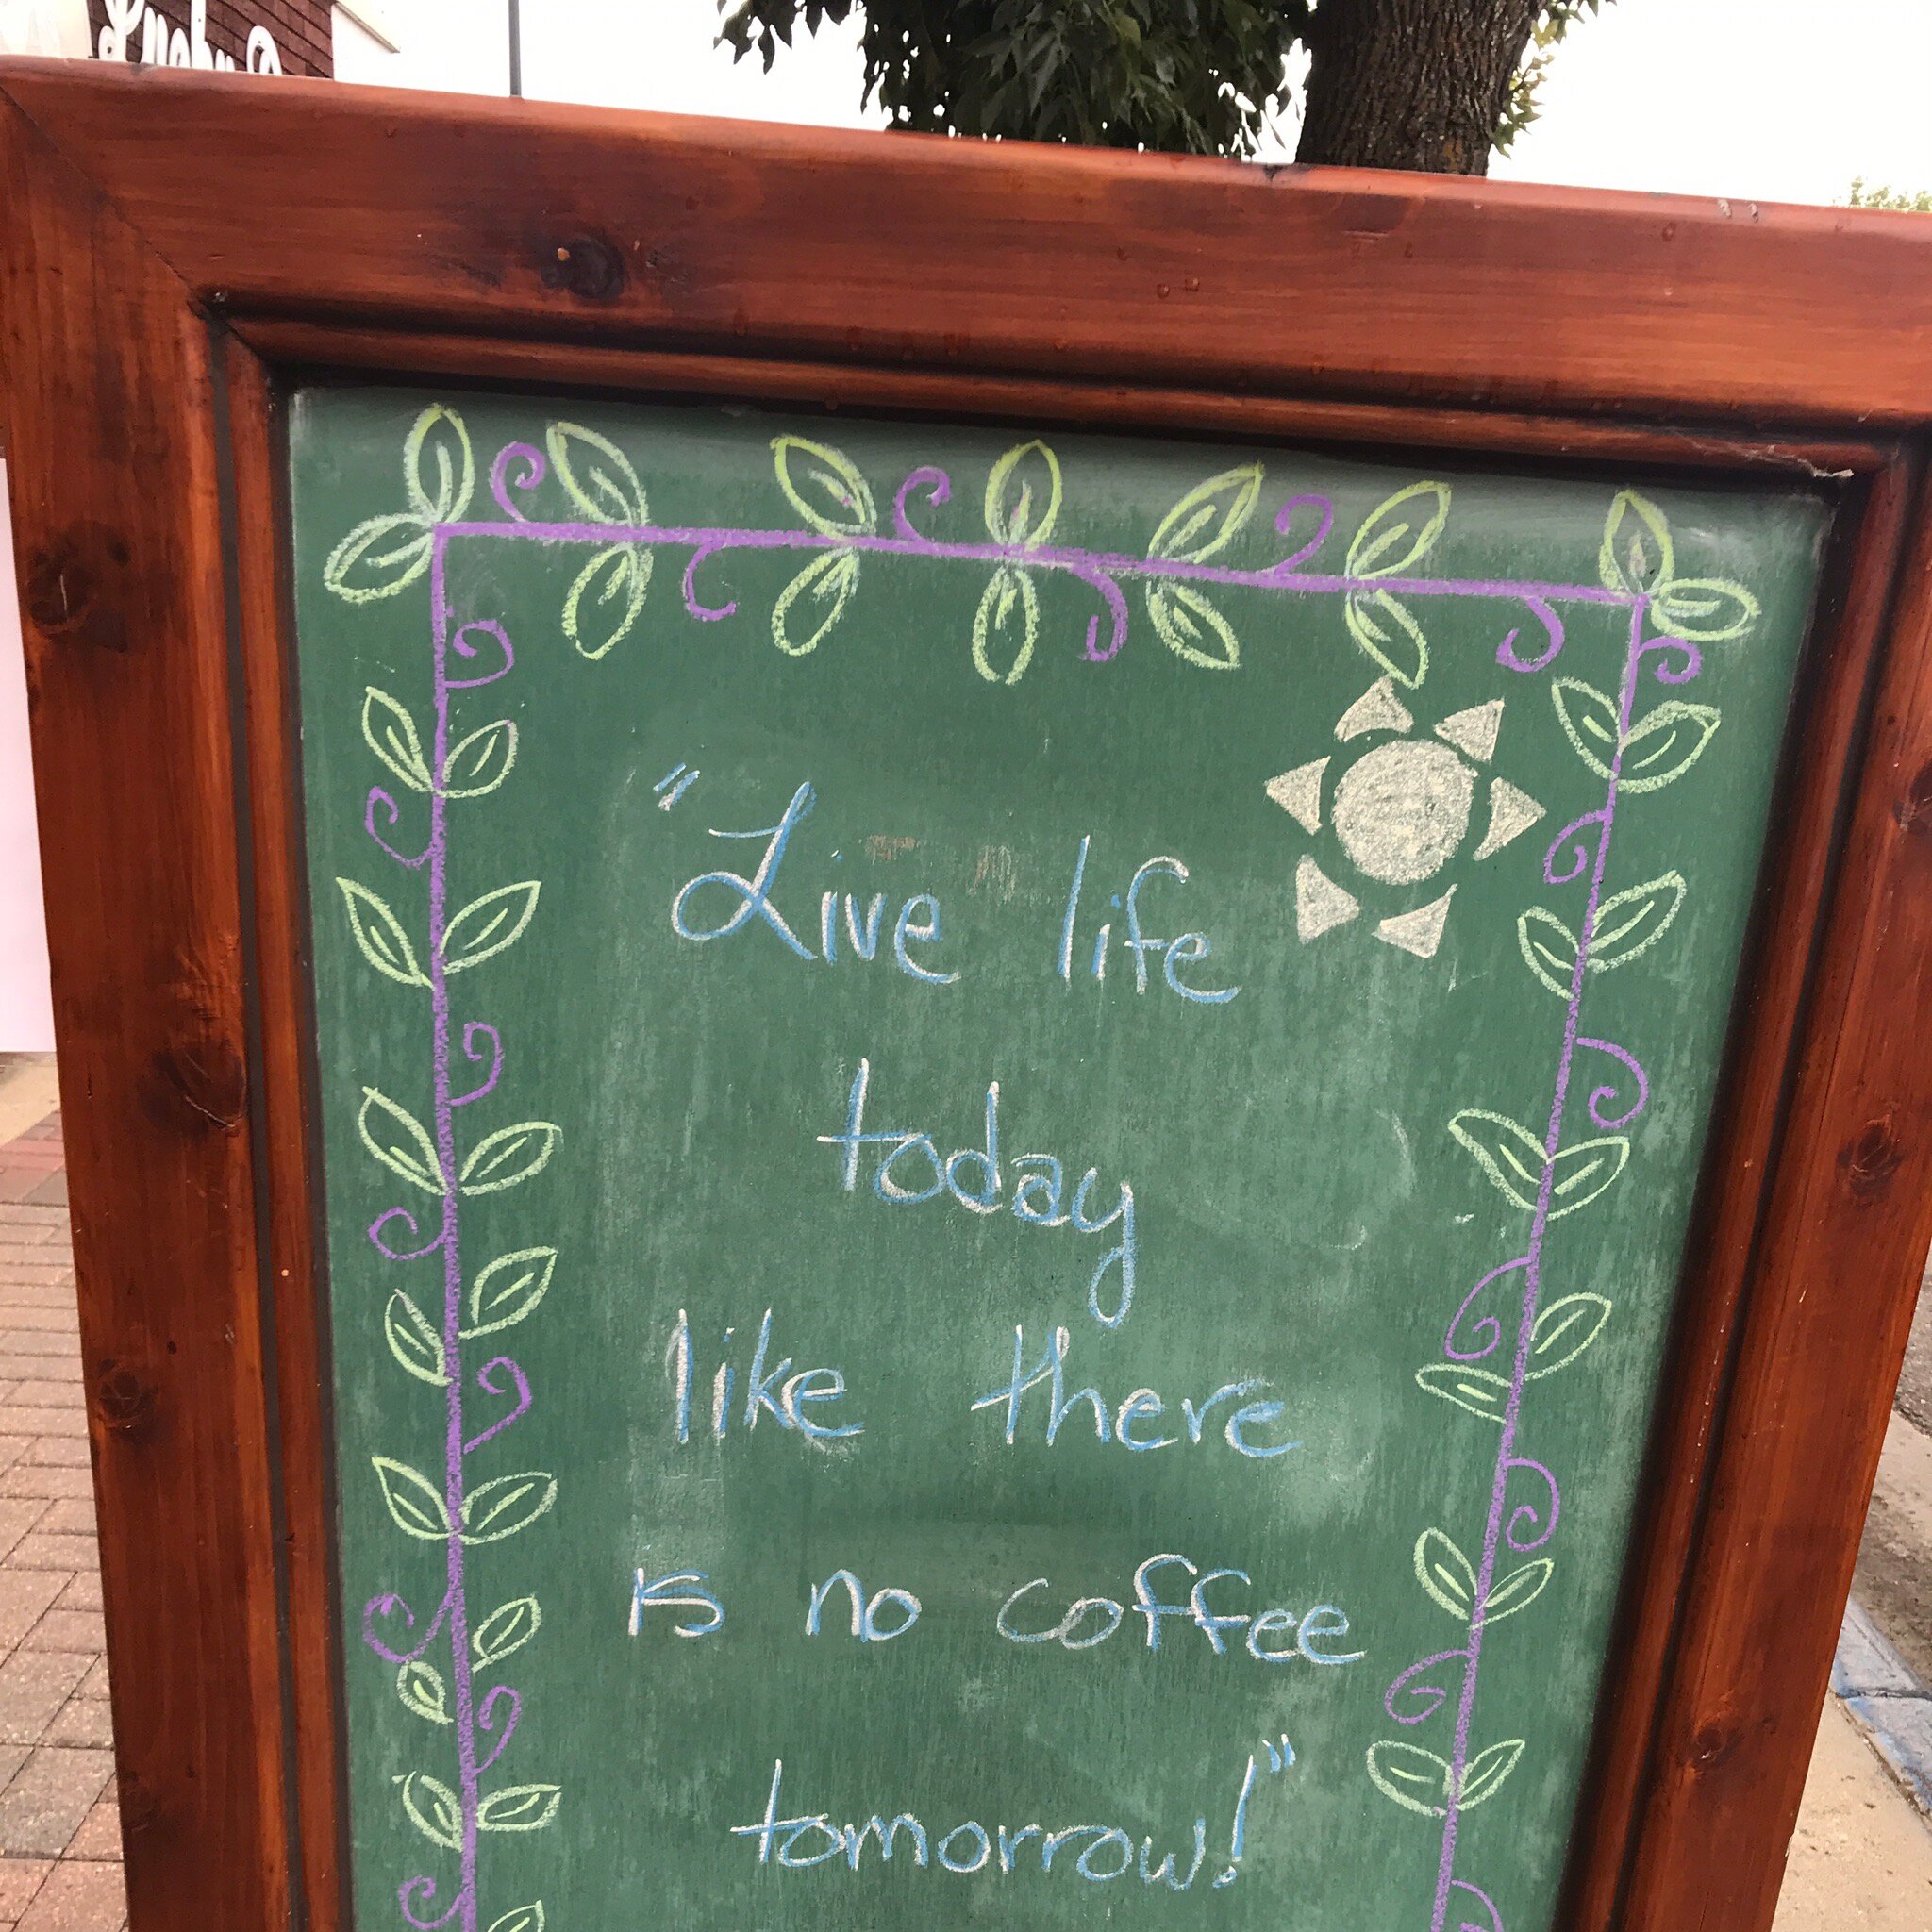 "Live life
today
like there
is no coffee
tomorrow!"